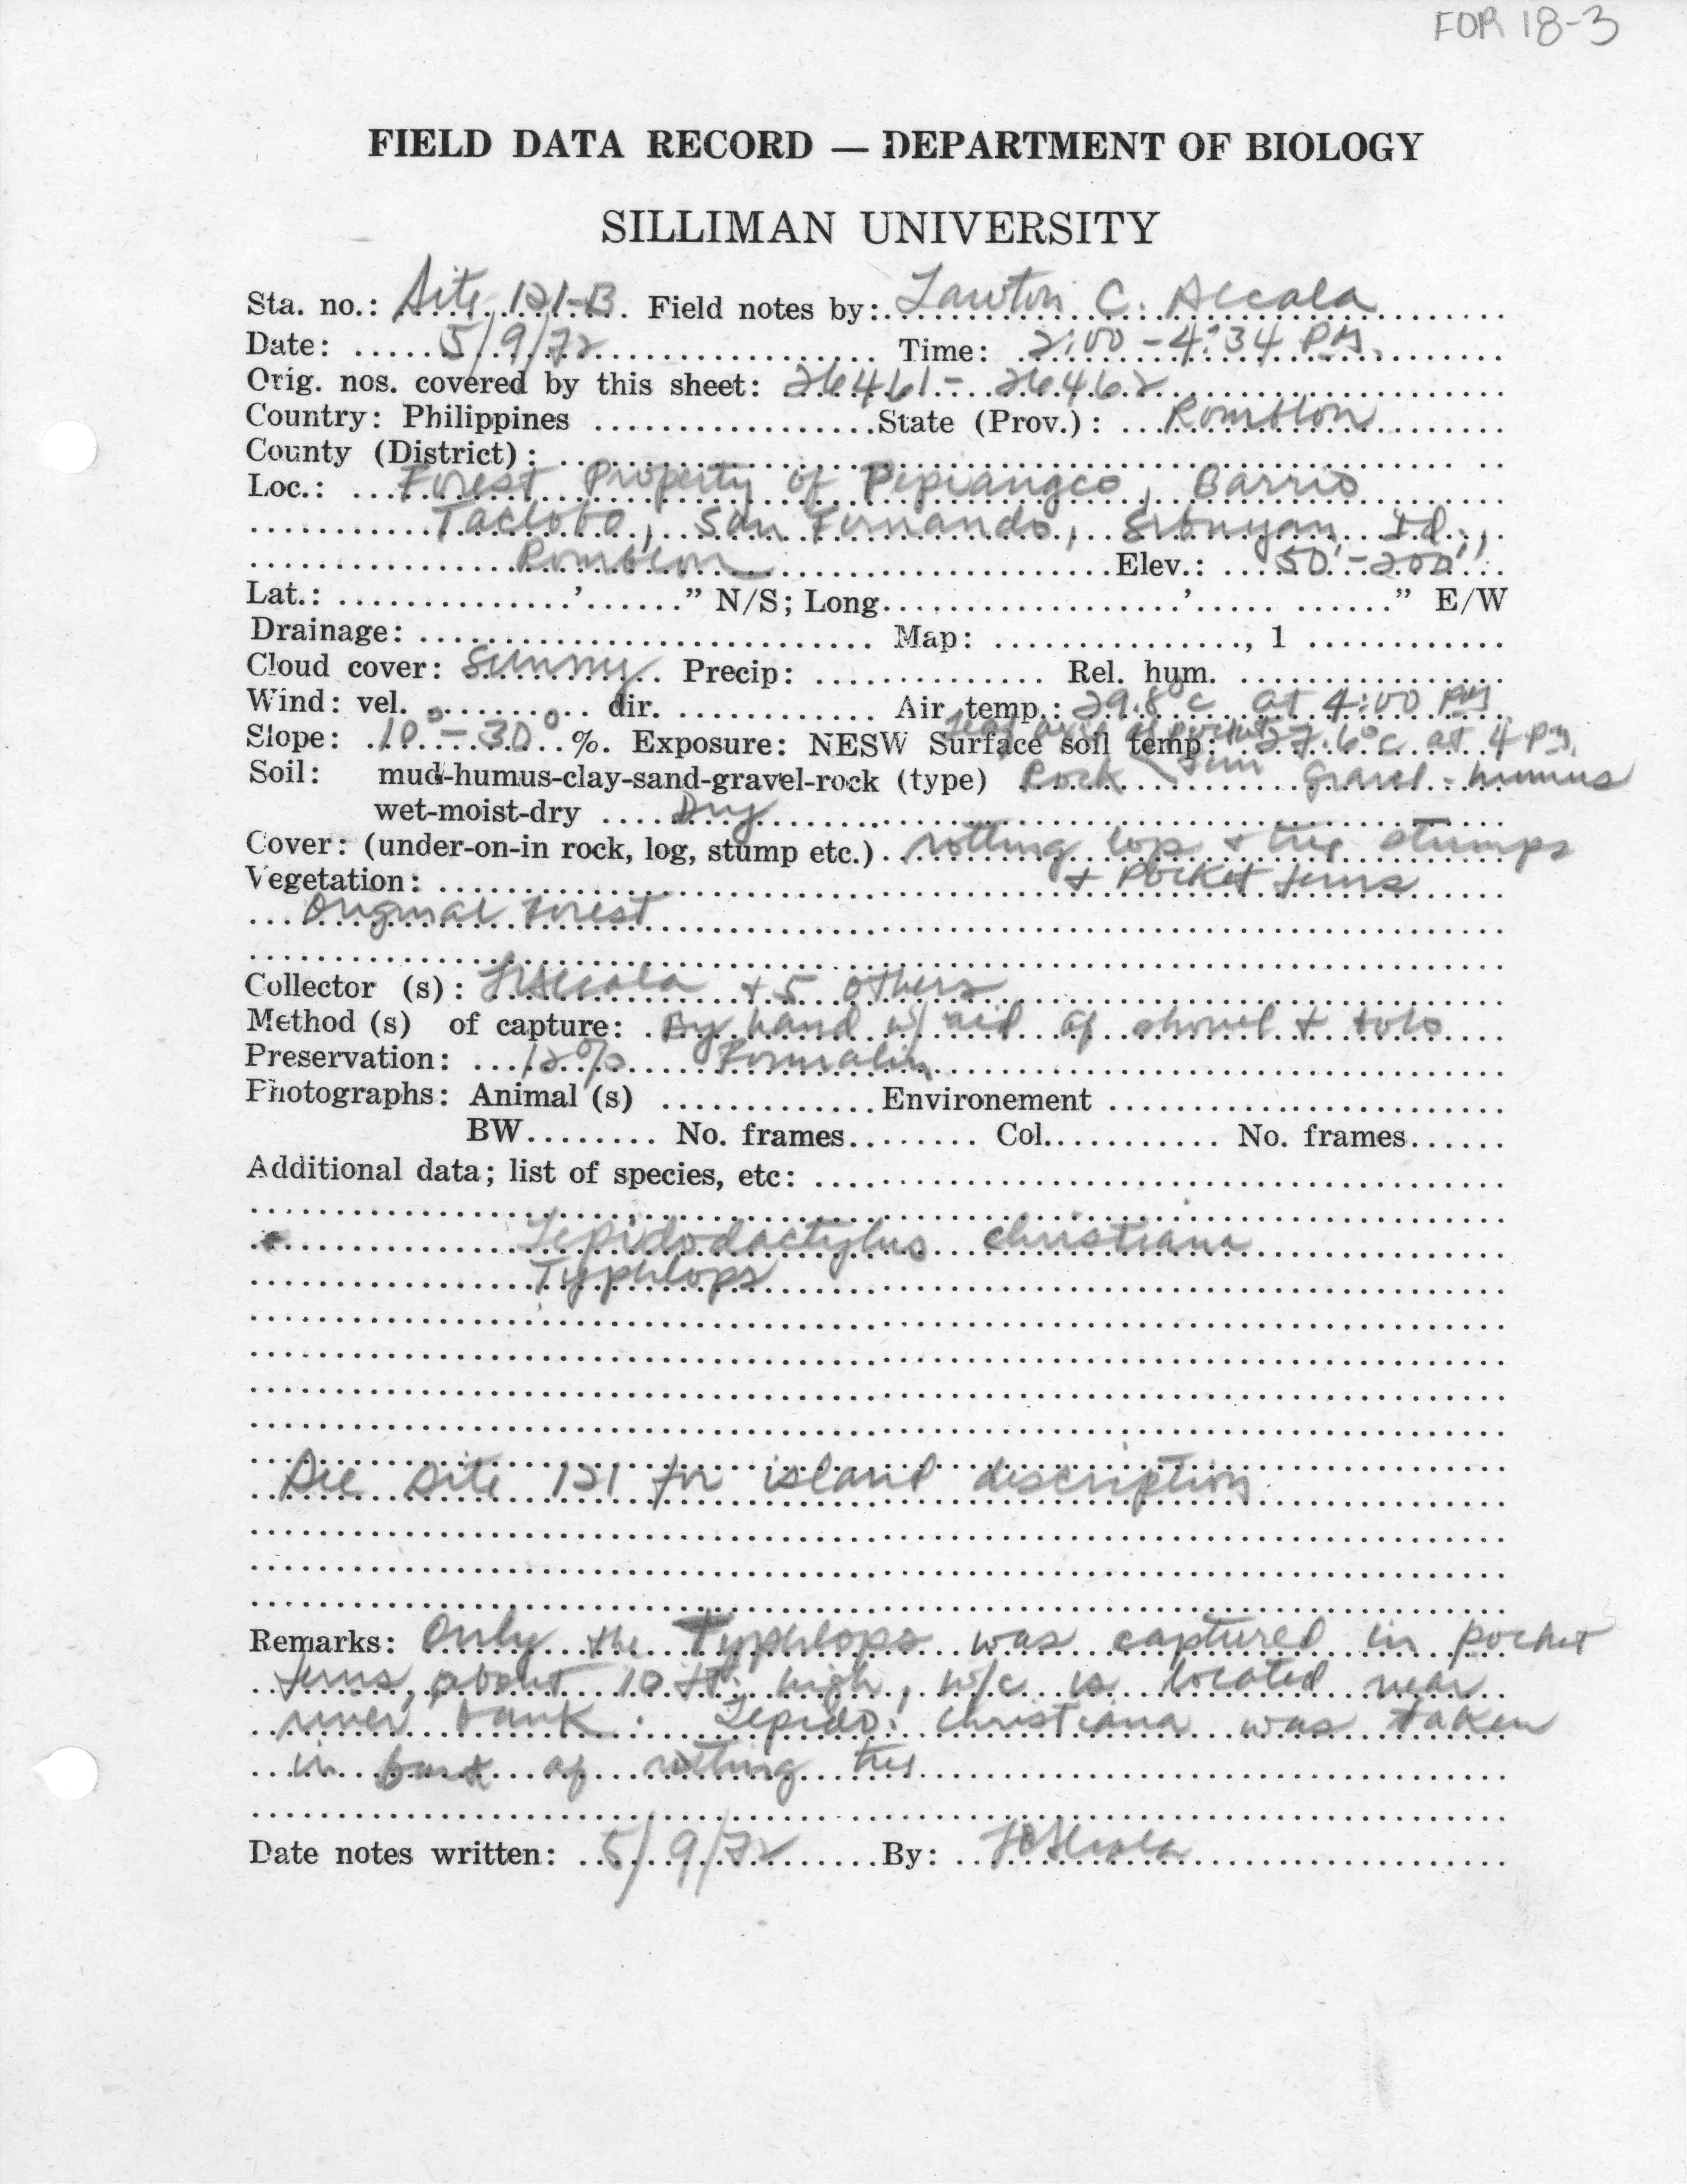 FOR 18-3
FIELD DATA RECORD — DEPARTMENT OF BIOLOGY
SILLIMAN UNIVERSITY
Sta. no.: Site 121-B. Field notes by: Lawton C. Alcala
Date: 5/9/72 Time: 2:00 - 4:34 PM.
Orig. nos. covered by this sheet: 26461 - 26462
Country: Philippines State (Prov.): Romblon
County (District):
Loc.: Forest Property of Pepiangco, Barrio
Tacloba, San Fernando, Sibuyan Id.,
Romblon Elev.: 50'-200'
Lat.: ' " N/S; Long. ' " E/W
Drainage: Map: , 1
Cloud cover: Sunny Precip: Rel. hum.
Wind: vel. dir. Air temp.: 29.8°C at 4:00 PM
Slope: 10° - 30° %. Exposure: NESW Surface soil temp: 27.6°C at 4 PM.
Soil: mud-humus-clay-sand-gravel-rock (type) Rock gravel - humus
wet-moist-dry Dry
Cover: (under-on-in rock, log, stump etc.) rotting logs + tree stumps
+ Pocket ferns
Vegetation:
Original Forest
Collector (s): LAlcala + 5 others
Method (s) of capture: By hand w/ aid of shovel + bolo
Preservation: 12% Formalin
Photographs: Animal (s) Environement
BW No. frames Col. No. frames
Additional data; list of species, etc:
Lepidodactylus christiana
Typhlops
See Site 121 for island description
Remarks: Only the Typhlops was captured in pocket
ferns, about 10 ft. high, w/c is located near
river bank. Lepido. christiana was taken
in bark of rotting tree
Date notes written: 5/9/72 By: LCAlcala